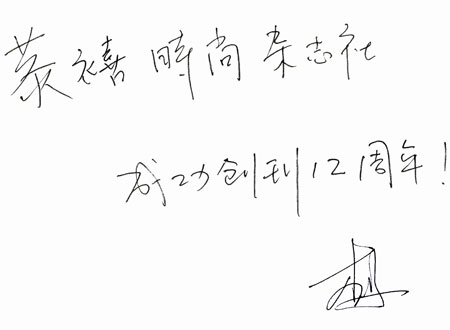 恭禧時尚杂志社
成功创刊12周年!